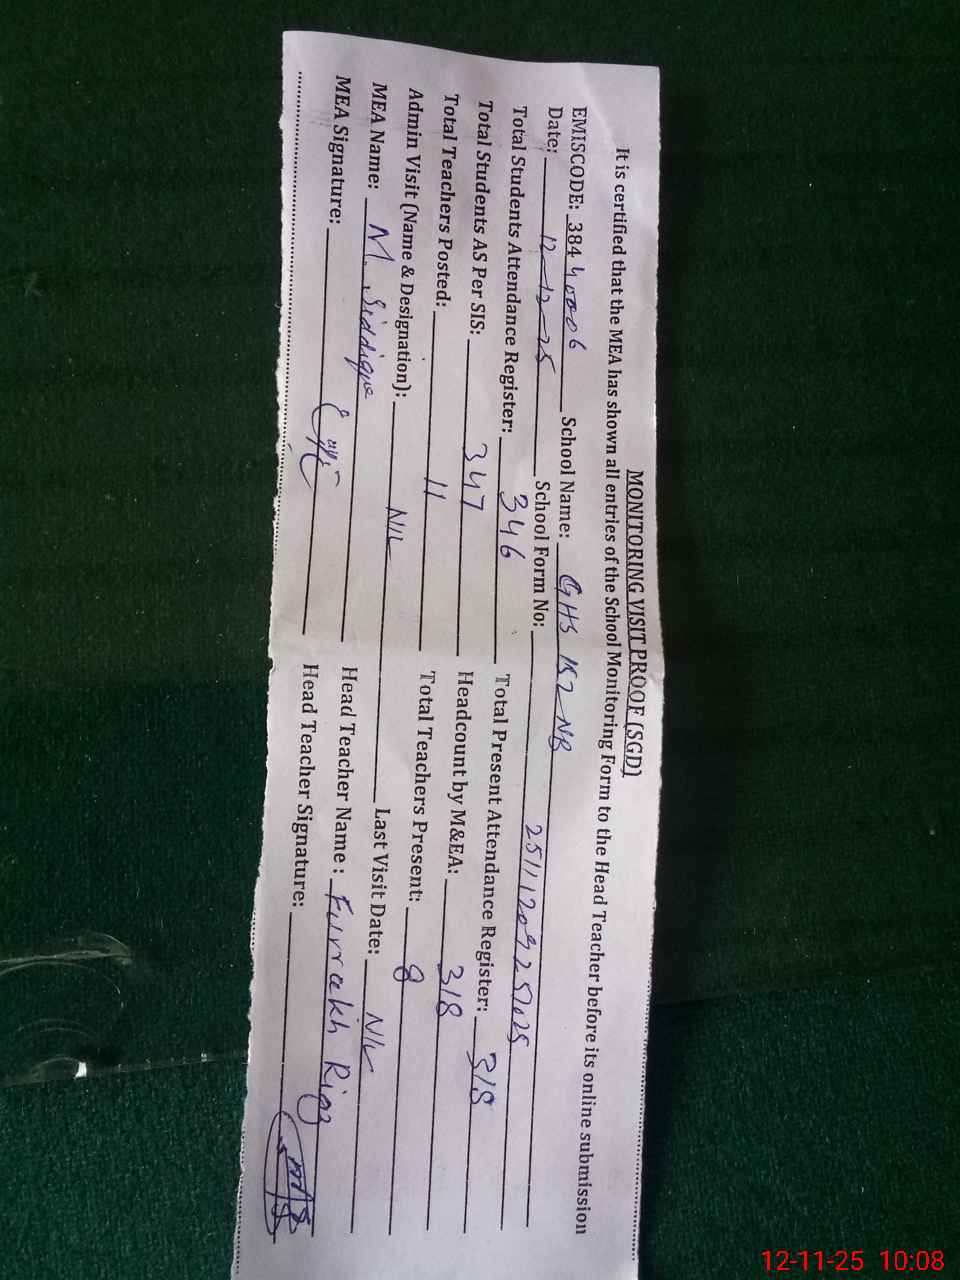 MONITORING VISIT PROOF (SGD)
It is certified that the MEA has shown all entries of the School Monitoring Form to the Head Teacher before its online submission
EMISCODE: 38440006 School Name: GHS 152 NB
Date: 12-12-25 School Form No:
Total Students Attendance Register: 346 Total Present Attendance Register: 318
Total Students AS Per SIS: 347 Headcount by M&EA: 318
Total Teachers Posted: 11 Total Teachers Present: 8
Admin Visit (Name & Designation): NIL Last Visit Date: NIL
MEA Name: M. Siddique Head Teacher Name : Furrakh Riaz
MEA Signature: Head Teacher Signature:
12-11-25 10:08